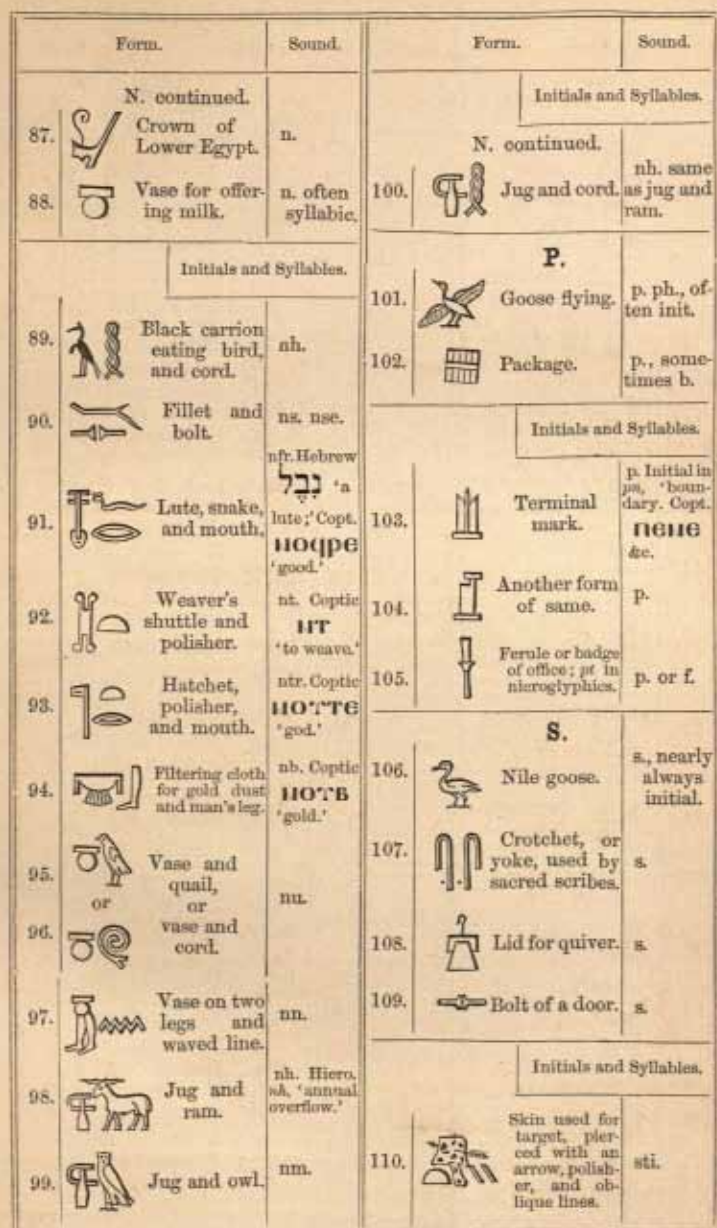 Form.
Sound.
N. continued.
87.
Crown of
Lower Egypt.
n.
88.
Vase for offer-
ing milk.
n. often
syllabic.
Initials and Syllables.
89.
Black carrion
eating bird,
and cord.
nh.
90.
Fillet and
bolt.
ns. nse.
91.
Lute, snake,
and mouth.
nfr. Hebrew
נבֶל 'a
lute;' Copt.
ⲛⲟϥⲣⲉ
'good.'
92.
Weaver's
shuttle and
polisher.
nt. Coptic
ⲛⲧ
'to weave.'
93.
Hatchet,
polisher,
and mouth.
ntr. Coptic
ⲛⲟⲧⲧⲉ
'god.'
94.
Filtering cloth
for gold dust
and man's leg.
nb. Coptic
ⲛⲟⲧⲃ
'gold.'
95.
or
96.
Vase and
quail,
or
vase and
cord.
nu.
97.
Vase on two
legs and
waved line.
nn.
98.
Jug and
ram.
nh. Hiero.
nh, 'annual
overflow.'
99.
Jug and owl.
nm.
Form.
Sound.
Initials and Syllables.
N. continued.
100.
Jug and cord.
nh. same
as jug and
ram.
P.
101.
Goose flying.
p. ph., of-
ten init.
102.
Package.
p., some-
times b.
Initials and Syllables.
103.
Terminal
mark.
p. Initial in
'boun-
dary. Copt.
&c.
104.
Another form
of same.
p.
105.
Ferule or badge
of office; pt in
hieroglyphics.
p. or f.
S.
106.
Nile goose.
s., nearly
always
initial.
107.
Crotchet, or
yoke, used by
sacred scribes.
s.
108.
Lid for quiver.
s.
109.
Bolt of a door.
s.
Initials and Syllables.
110.
Skin used for
target, pier-
ced with an
arrow, polish-
er, and ob-
lique lines.
sti.